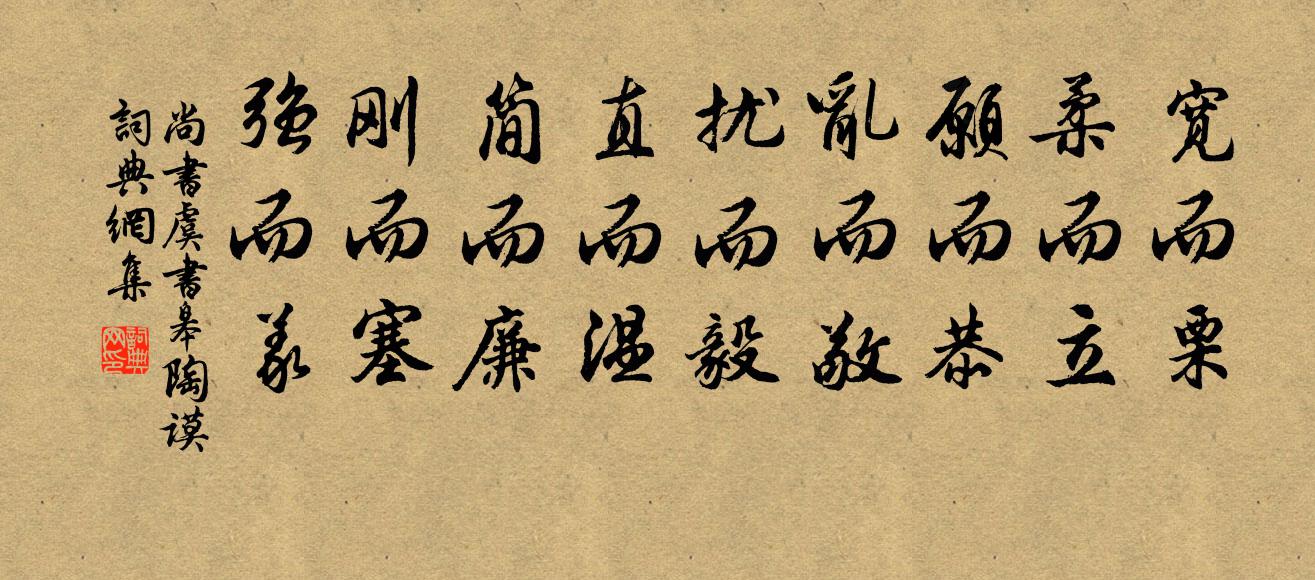 寛而栗
柔而立
願而恭
亂而敬
扰而毅
直而温
简而廉
刚而塞
強而義
尚書虞書皋陶謨
詞典網集
詞典网印